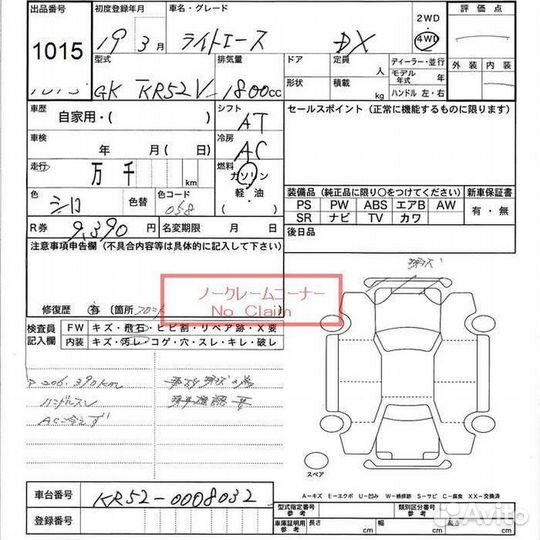 出品番号 初度登録年月 車名・グレード 2WD 評価点
1015 19 3月 ライトエース DX 4WD
型式 排気量 ドア 定員 ディーラー・並行 外装 内装
人 モデル年式
形状 積載 kg ハンドル 左・右
GK KR52V 1800cc
車歴 シフト セールスポイント (正常に機能するものに限ります)
自家用・( ) AT
車検 冷房
年 月(日) AC
走行 燃料
万 千 km ガソリン 軽・油
装備品 (純正品に限り○をつけてください) 新車保証書
色 色替 色コード PS PW ABS エアB AW 有・無
シロ 058 SR ナビ TV カワ
R券 名変期限 月 日 後日品
9,390
注意事項申告欄 (不具合内容等は具体的に記入して下さい)
ノークレームコーナー
No Claim
修復歴 有 (箇所 フロント
検査員記入欄 FW キズ・飛石・ヒビ割・リペア跡・X要
内装 キズ・汚レ・コゲ・穴・スレ・キレ・破レ
206,390km
ハンドルスレ
AC冷えず
スペア
A－キズ E－エクボ U－凹み W－補修跡 S－サビ C－腐食 XX－交換済
車台番号 KR52-0008032
登録番号
型式指定番号 参考 類別区分番号 参考
車庫証明用 参考 長さ cm 幅 cm 高さ cm
Avito